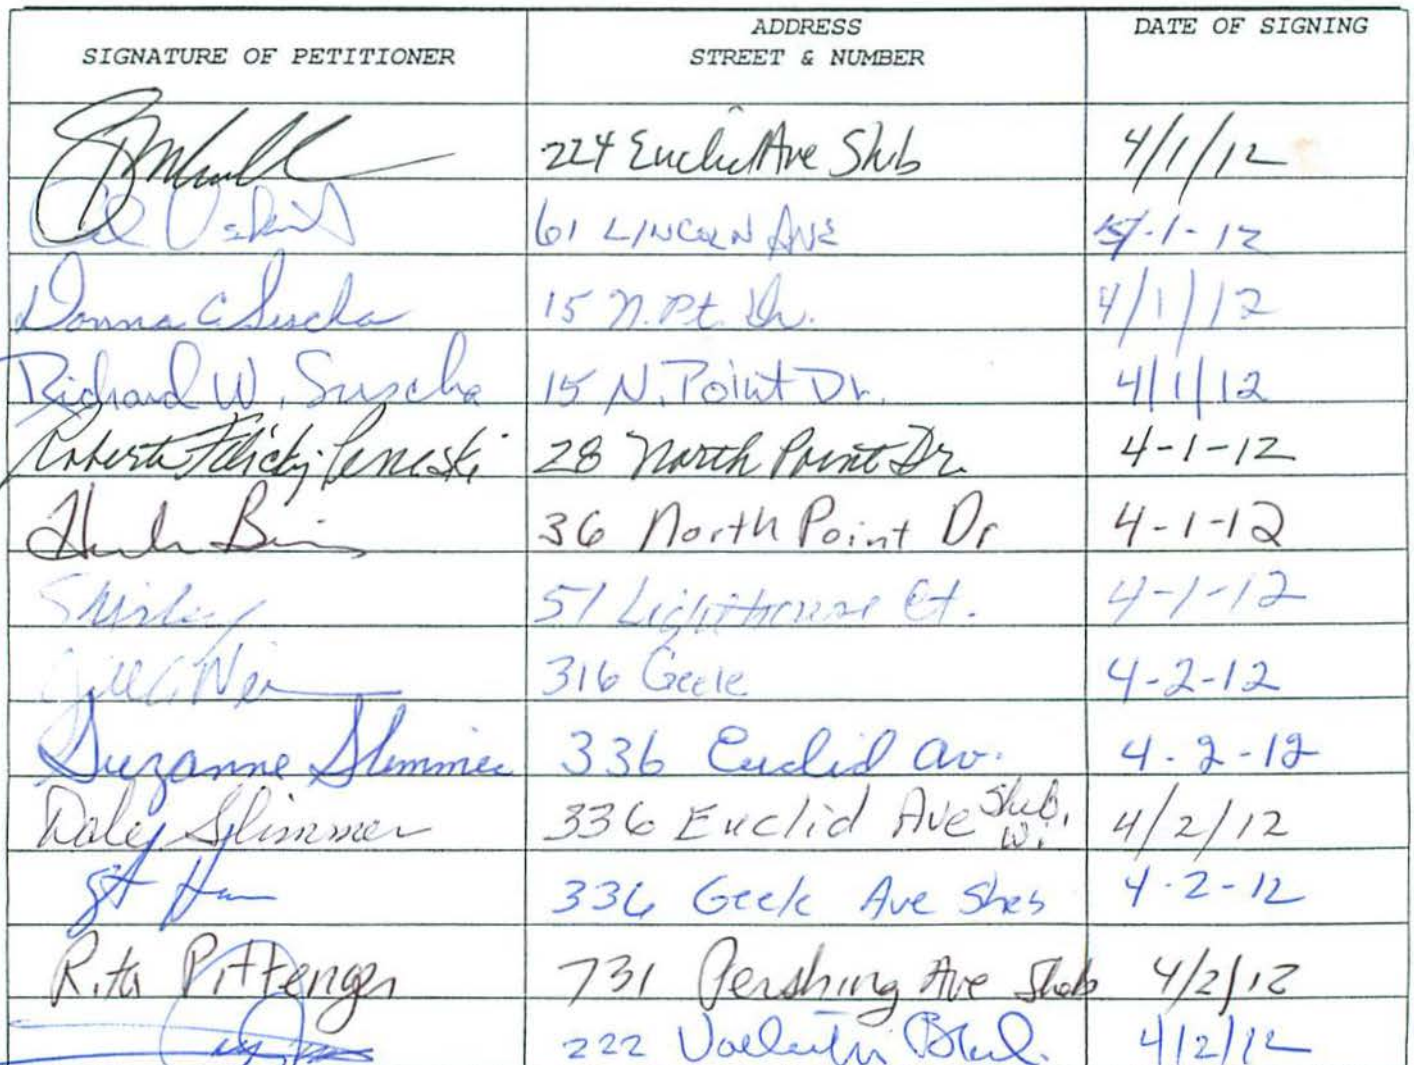 ADDRESS DATE OF SIGNING
SIGNATURE OF PETITIONER STREET & NUMBER
224 Euclid Ave Sheb 4/1/12
61 LINCOLN AVE 4-1-12
Donna C Suscha 15 N. Pt. Dr. 4/1/12
Richard W. Suscha 15 N. Point Dr. 4/1/12
Roberta Filicky-Peneski 28 North Point Dr. 4-1-12
36 North Point Dr 4-1-12
Shirley 51 Lighthouse Ct. 4-1-12
316 Geele 4-2-12
Suzanne Slimmer 336 Euclid Av. 4-2-12
Daley Slimmer 336 Euclid Ave Sheb. W. 4/2/12
336 Ave Sheb 4-2-12
Rita Pittenger 731 Pershing Ave Sheb 4/2/12
222 4/2/12